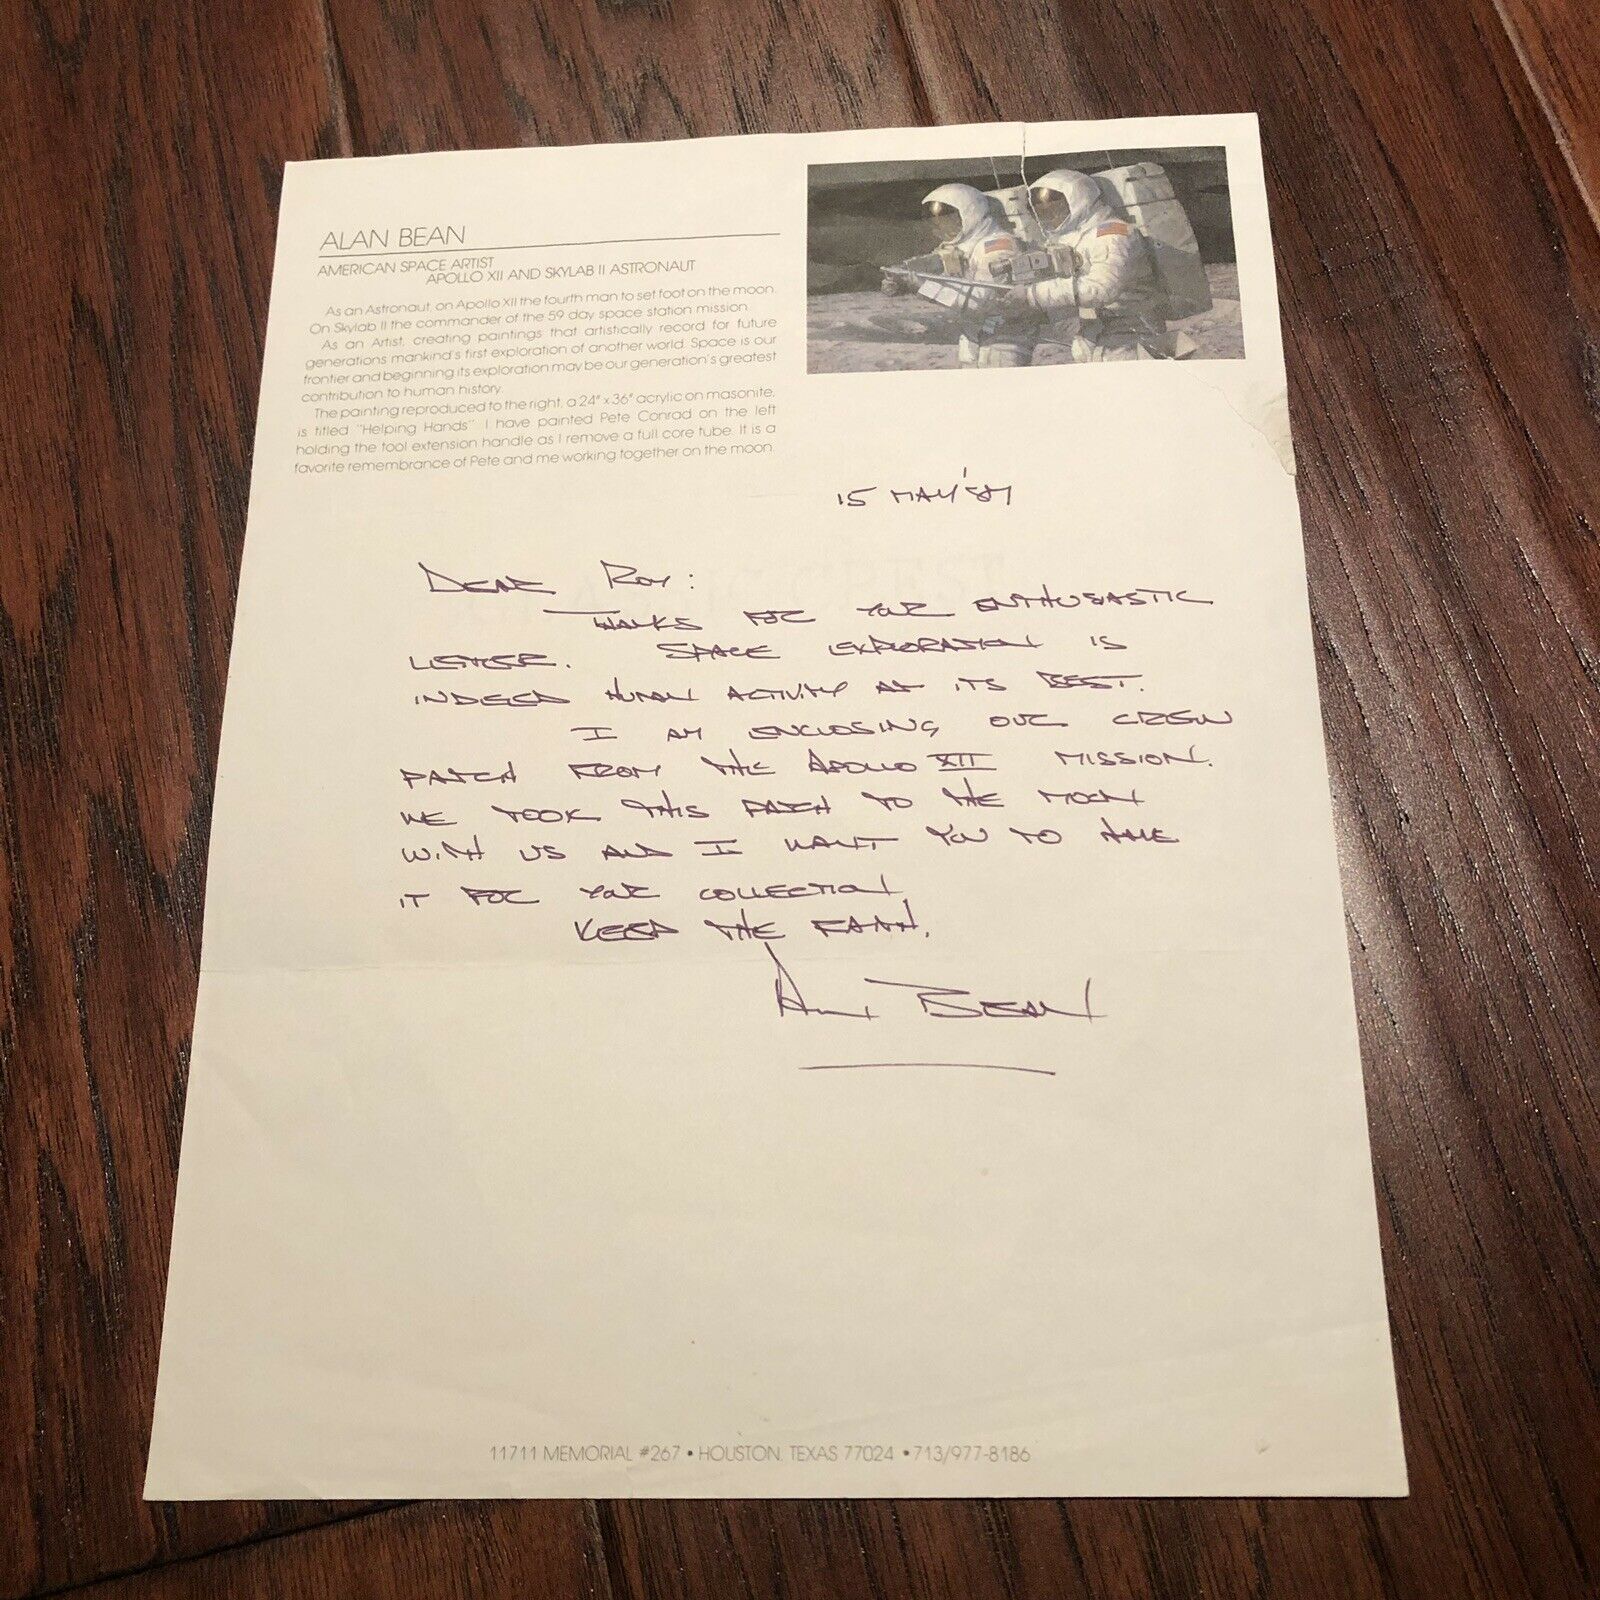 ALAN BEAN
AMERICAN SPACE ARTIST
APOLLO XII AND SKYLAB II ASTRONAUT
As an Astronaut, on Apollo XII the fourth man to set foot on the moon.
On Skylab II the commander of the 59 day space station mission.
As an Artist, creating paintings that artistically record for future
generations mankind's first exploration of another world. Space is our
frontier and beginning its exploration may be our generation's greatest
contribution to human history.
The painting reproduced to the right, a 24" x 36" acrylic on masonite,
is titled "Helping Hands". I have painted Pete Conrad on the left
holding the tool extension handle as I remove a full core tube. It is a
favorite remembrance of Pete and me working together on the moon.
15 MAY '87
DEAR ROY:
THANKS FOR YOUR ENTHUSIASTIC
LETTER. SPACE EXPLORATION IS
INDEED HUMAN ACTIVITY AT ITS BEST.
I AM ENCLOSING OUR CREW
PATCH FROM THE APOLLO XII MISSION.
WE TOOK THIS PATCH TO THE MOON
WITH US AND I WANT YOU TO HAVE
IT FOR YOUR COLLECTION.
KEEP THE FAITH.
ALAN BEAN
11711 MEMORIAL #267 • HOUSTON, TEXAS 77024 • 713/977-8186